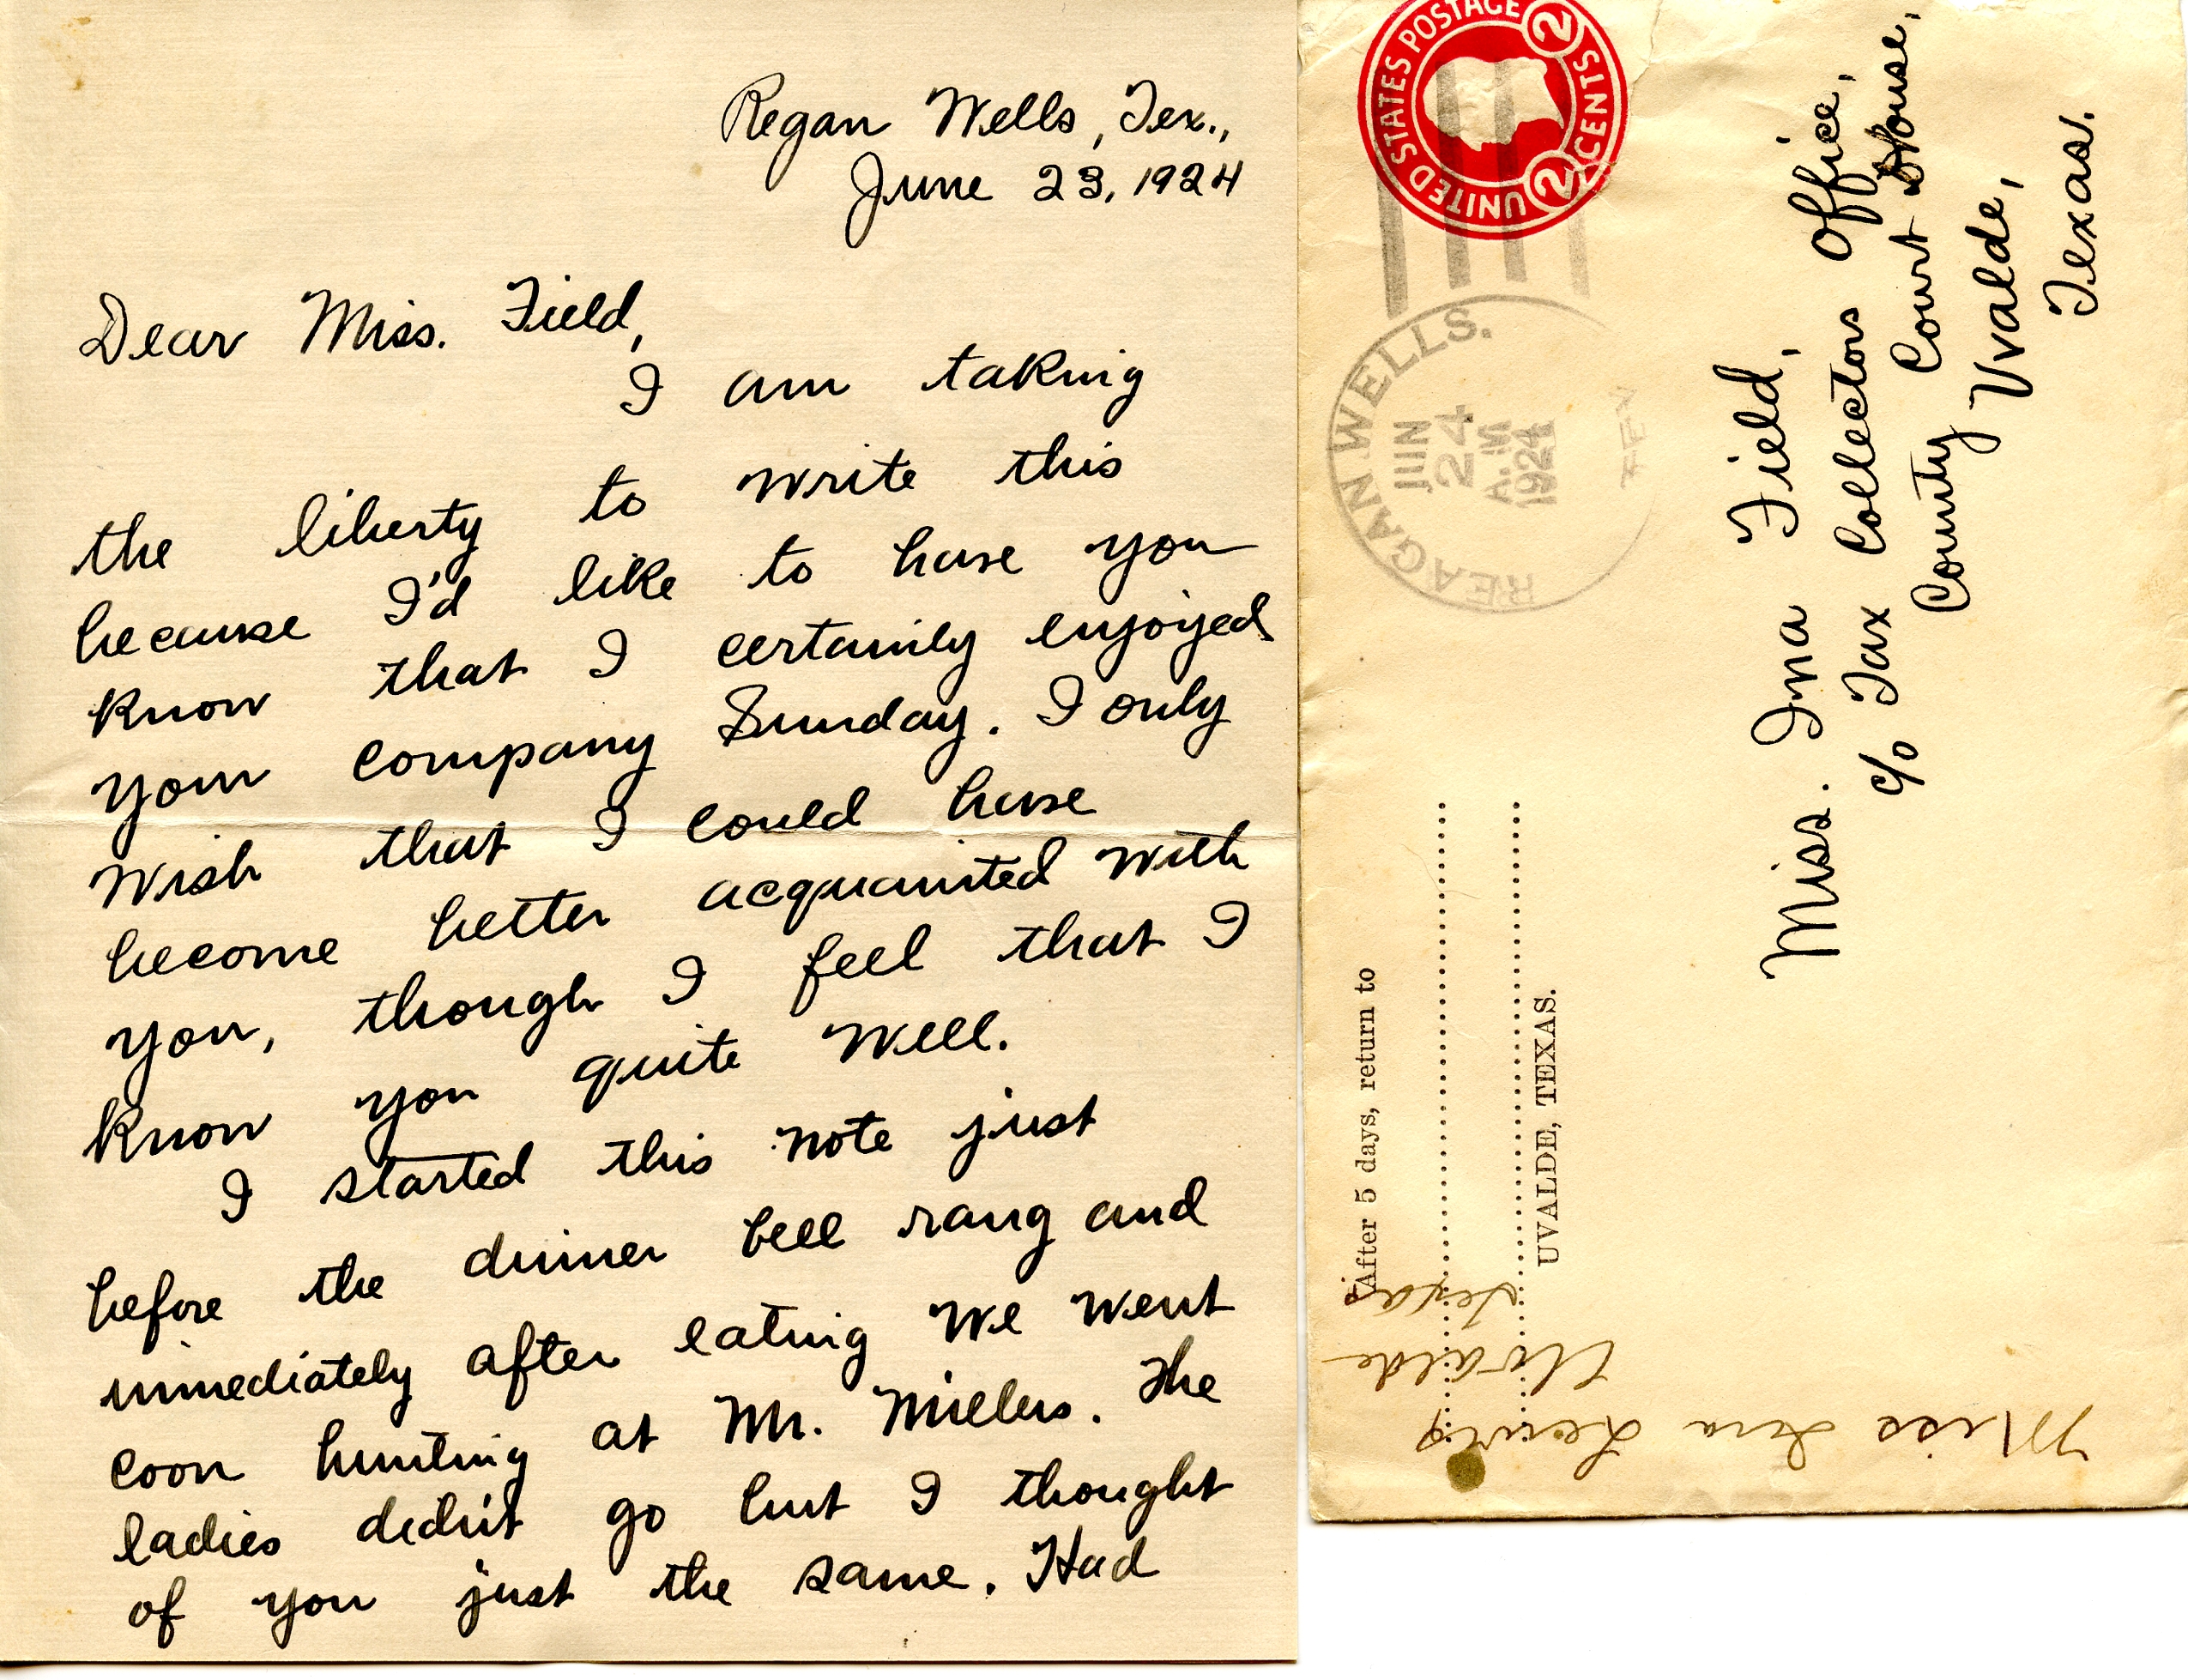 Regan Wells, Tex.,
June 23, 1924
Dear Miss. Field,
I am taking
the liberty to write this
because I'd like to have you
know that I certainly enjoyed
your company Sunday. I only
wish that I could have
become better acquainted with
you, though I feel that I
know you quite well.
I started this note just
before the dinner bell rang and
immediately after eating we went
coon hunting at Mr. Millers. The
ladies didn't go but I thought
of you just the same. Had
UNITED STATES POSTAGE
2 CENTS 2
REAGAN WELLS.
JUN
24
A.M
1924
TEX
Miss. Ina Field,
c/o Tax Collectors Office,
County Court House,
Uvalde,
Texas.
After 5 days, return to
UVALDE, TEXAS.
Miss Lewis
Uvalde
Texas